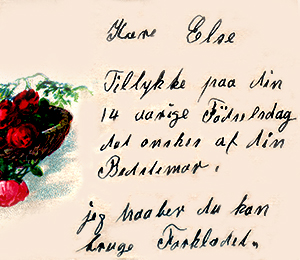 Kære Else
Tillykke paa din
14 aarige Födselsdag
det ønsker af din
Bedstemor.
jeg haaber du kan
bruge Forklædet.